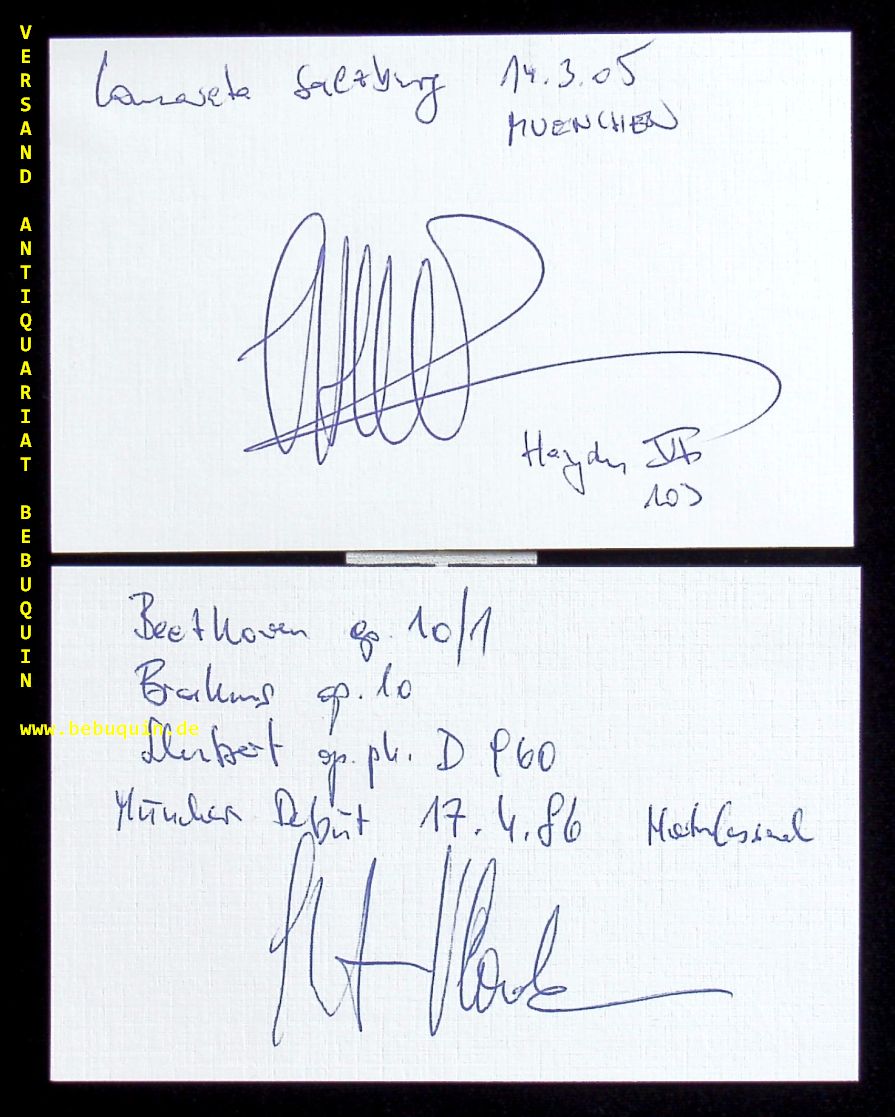 VERSAND ANTIQUARIAT BEBUQUIN
www.bebuquin.de
Camerata Salzburg 14.3.05
MUENCHEN
Haydn
103
Beethoven op. 10/1
Brahms op. 10
Schubert op. ph. D 960
München Debüt 17.4.86